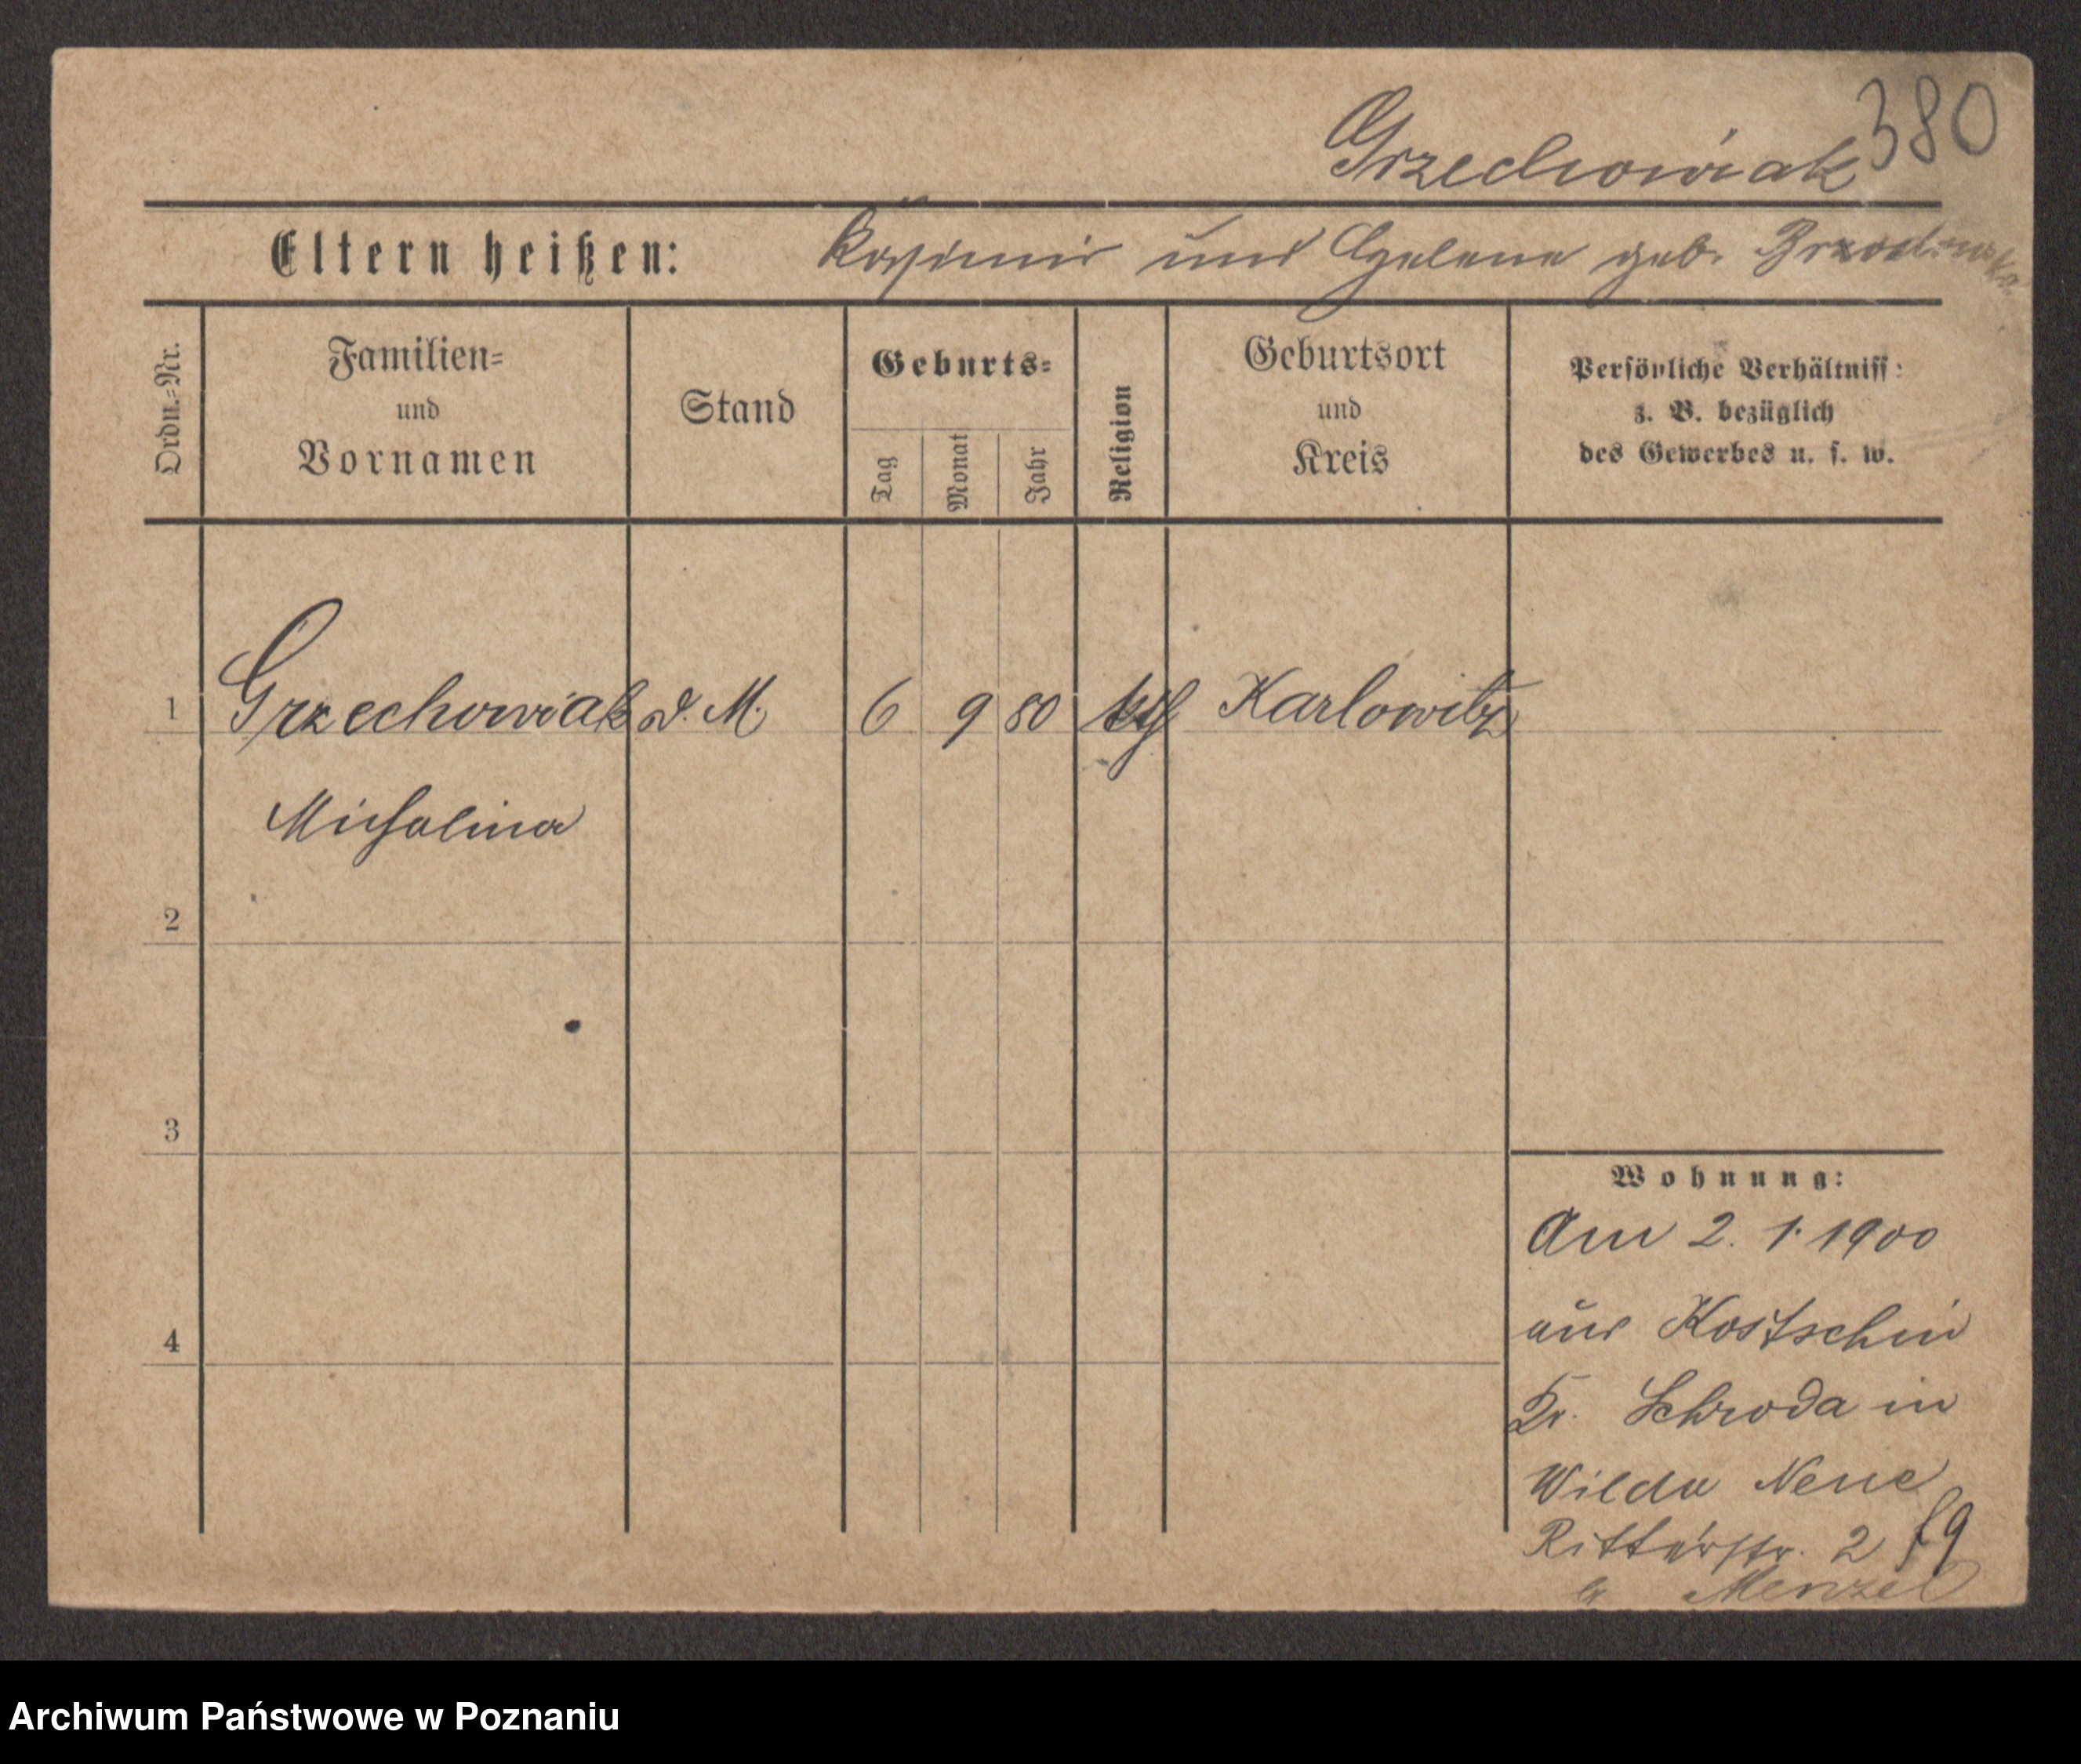 380
Grzechowiak
Eltern heißen: Kasimir und Helena geb.
Ordn.=Nr.
Familien=
und
Vornamen
Stand
Geburts=
Tag
Monat
Jahr
Religion
Geburtsort
und
Kreis
Persönliche Verhältniss:
z. B. bezüglich
des Gewerbes u. s. w.
1 Grzechowiak d. M. 6 9 80 kth Karlowitz
Michalina
2
3
4
Wohnung:
Am 2. 1. 1900
aus Kostschin
Kr. Schroda in
Wilda Neue
Ritterstr. 2
b Menzel
Archiwum Państwowe w Poznaniu